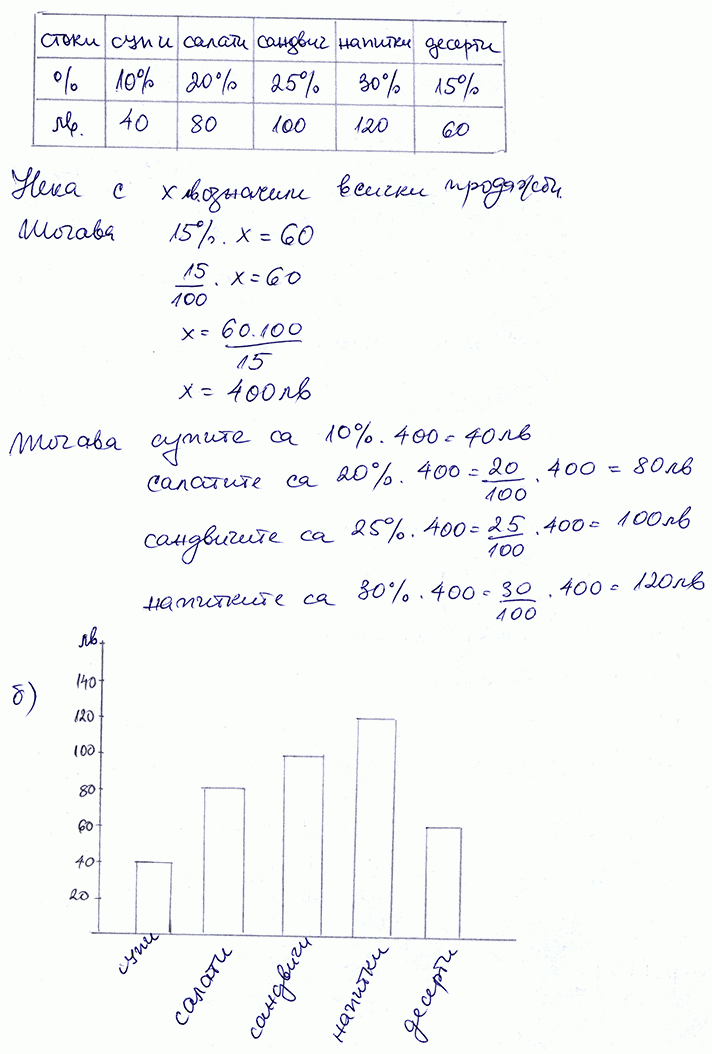 стоки супи салати сандвич напитки десерти
% 10% 20% 25% 30% 15%
лв. 40 80 100 120 60
Нека с x лв. означим всички продажби.
Тогава 15% . x = 60
15/100 . x = 60
x = 60.100/15
x = 400 лв
Тогава супите са 10% . 400 = 40 лв
салатите са 20% . 400 = 20/100 . 400 = 80 лв
сандвичите са 25% . 400 = 25/100 . 400 = 100 лв
напитките са 30% . 400 = 30/100 . 400 = 120 лв
б)
лв
140
120
100
80
60
40
20
супи салати сандвичи напитки десерти